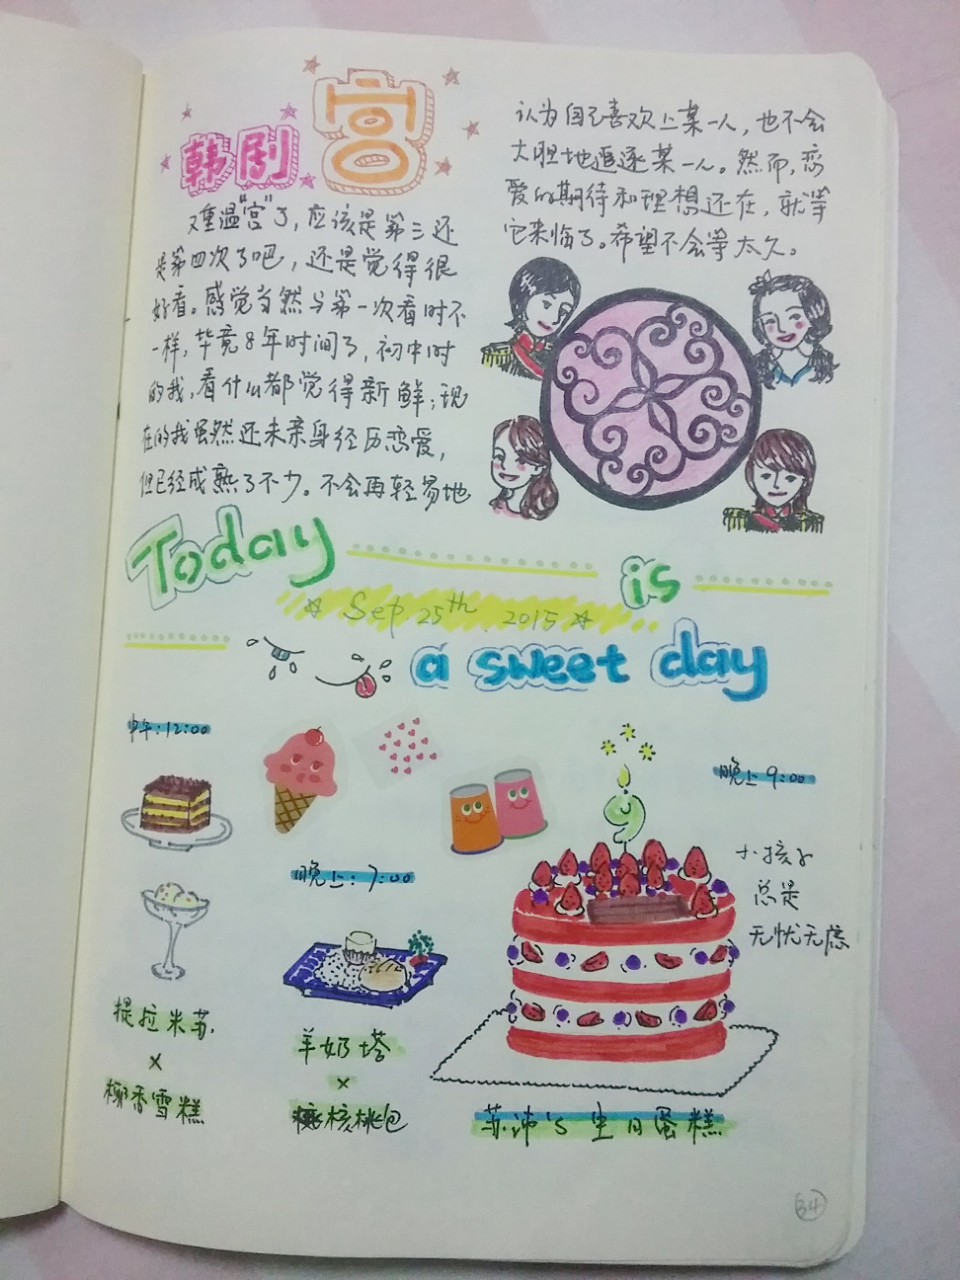 韩剧 宫
又重温"宫"了，应该是第三还
是第四次了吧，还是觉得很
好看。感觉当然与第一次看时不
一样，毕竟8年时间了，初中时
的我，看什么都觉得新鲜；现
在的我虽然还未亲身经历恋爱，
但已经成熟了不少。不会再轻易地
认为自己喜欢上某一人，也不会
大胆地追逐某一人。然而，恋
爱的期待和理想还在，就等
它来临了。希望不会等太久。
Today is
Sep. 25th. 2015
a sweet day
中午：12:00
提拉米苏
×
椰香雪糕
晚上：7:00
羊奶塔
×
核桃包
9
晚上9:00
小孩子
总是
无忧无虑
苏沛's 生日蛋糕
34